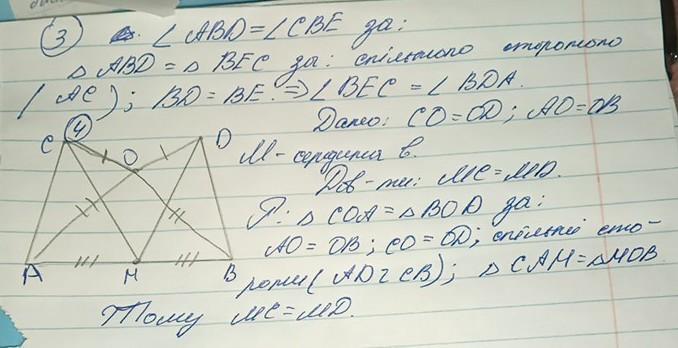 3 ∠ ABD = ∠ CBE за:
△ ABD = △ BEC за: спільною стороною
(AC); BD = BE. ⇒ ∠ BEC = ∠ BDA.
4 Дано: CO = OD; AO = OB
M - середина
Дов-ти: MC = MD.
△ COA = △ BOD за:
AO = OB; CO = OD; спільній сто-
рони (AD і CB); △ CAM = △ MOB.
Тому MC = MD.
C O D
A M B